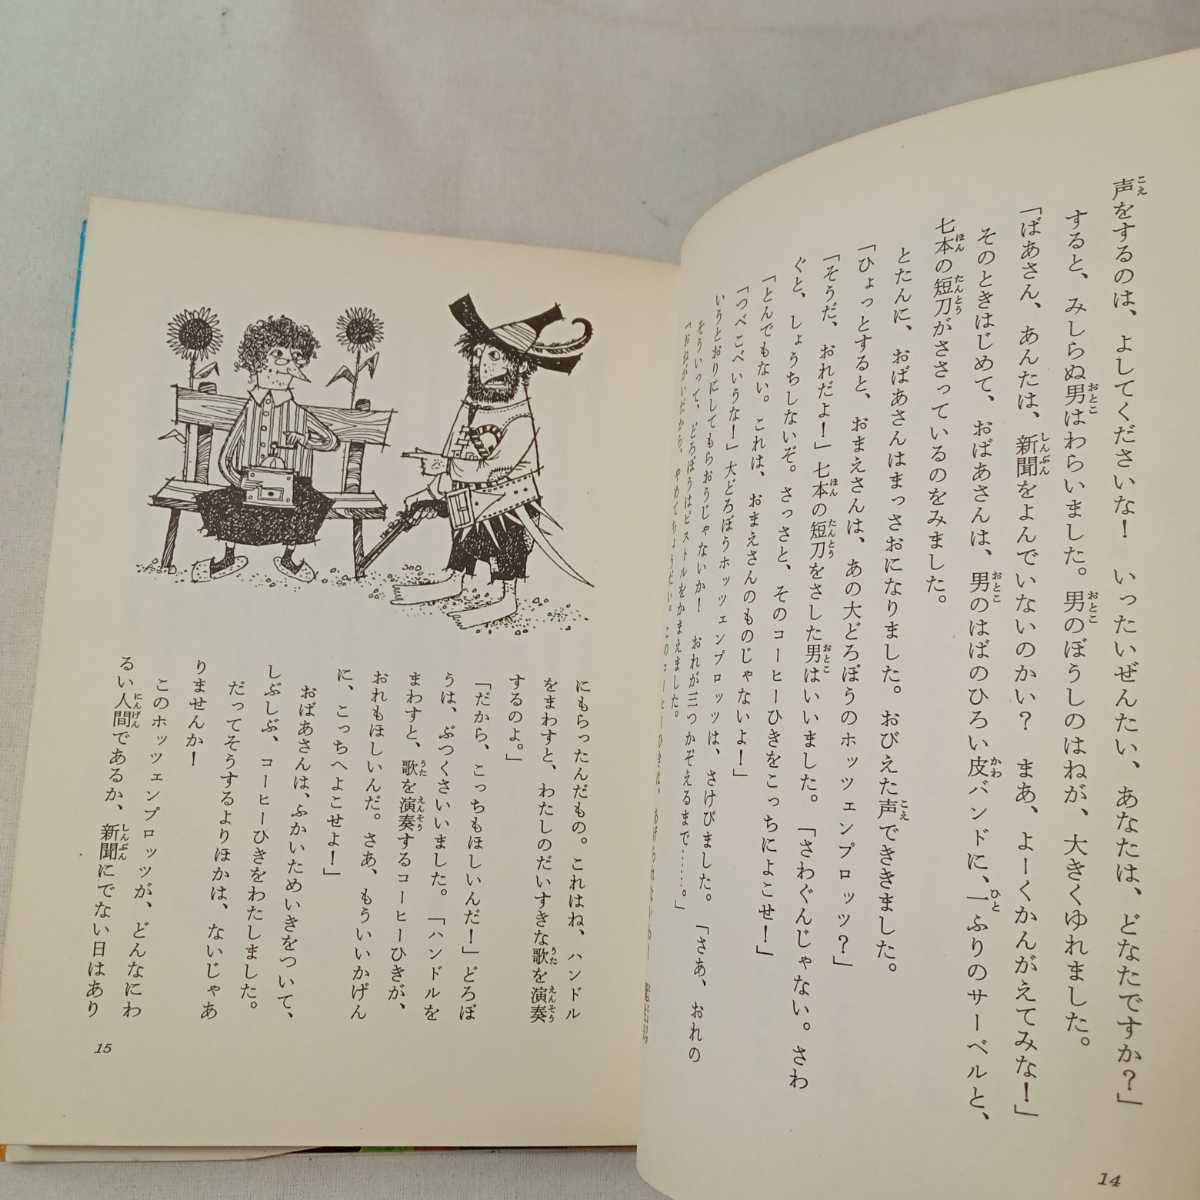 声をするのは、よしてくださいな！　いったいぜんたい、あなたは、どなたですか？」
すると、みしらぬ男はわらいました。男のぼうしのはねが、大きくゆれました。
「ばあさん、あんたは、新聞をよんでいないのかい？　まあ、よーくかんがえてみな！」
そのときはじめて、おばあさんは、男のはばのひろい皮バンドに、一ふりのサーベルと、
七本の短刀がささっているのをみました。
とたんに、おばあさんはまっさおになりました。おびえた声でききました。
「ひょっとすると、おまえさんは、あの大どろぼうのホッツェンプロッツ？」
「そうだ、おれだよ！」七本の短刀をさした男はいいました。「さわぐんじゃない。さわ
ぐと、しょうちしないぞ。さっさと、そのコーヒーひきをこっちによこせ！」
「とんでもない。これは、おまえさんのものじゃないよ！」
「つべこべいうな！」大どろぼうホッツェンプロッツは、さけびました。「さあ、おれの
いうとおりにしてもらおうじゃないか！　おれが三つかぞえるまで……。」
そういって、どろぼうはピストルをかまえました。
「おねがいだから、やめてちょうだい。
14
にもらったんだもの。これはね、ハンドル
をまわすと、わたしのだいすきな歌を演奏
するのよ。」
「だから、こっちもほしいんだ！」どろぼ
うは、ぶつくさいいました。「ハンドルを
まわすと、歌を演奏するコーヒーひきが、
おれもほしいんだ。さあ、もういいかげん
に、こっちへよこせよ！」
おばあさんは、ふかいためいきをついて、
しぶしぶ、コーヒーひきをわたしました。
だってそうするよりほかは、ないじゃあ
りませんか！
このホッツェンプロッツが、どんなにわ
るい人間であるか、新聞にでない日はあり
15